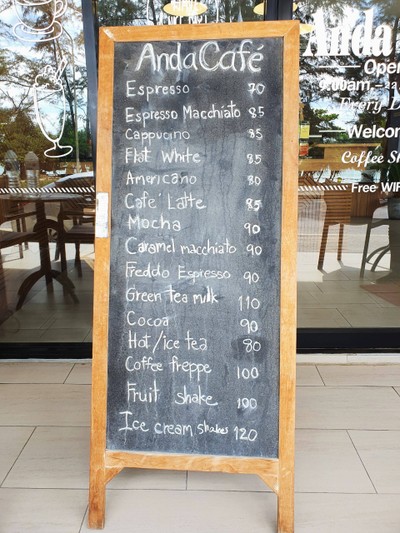 AndaCafé
Espresso 70
Espresso Macchiato 85
Cappucino 85
Flat White 85
Americano 80
Cafe' Latte 85
Mocha 90
Caramel macchiato 90
Freddo Espresso 90
Green tea milk 110
Cocoa 90
Hot/ice tea 80
Coffee freppe 100
Fruit shake 100
Ice cream shakes 120
Anda
Open
9.00am.-
Every D
Welcom
Coffee Sh
Free WIF